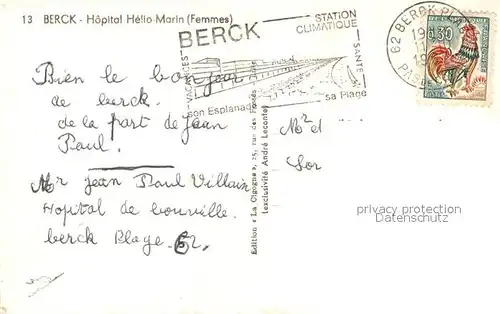 13 BERCK - Hôpital Hélio-Marin (Femmes)
BERCK
STATION
CLIMATIQUE
VACANCES
SANTÉ
son Esplanade
sa Plage
62 BERCK PL
PAS DE
0,30
Bien le bonjour
de berck.
de la part de Jean
Paul.
Mr Jean Paul Villain
Hopital de bouville.
berck Plage. 62.
Edition « La Cigogne », 25, rue des
(exclusivité André Leconte)
Mr et
privacy protection
Datenschutz